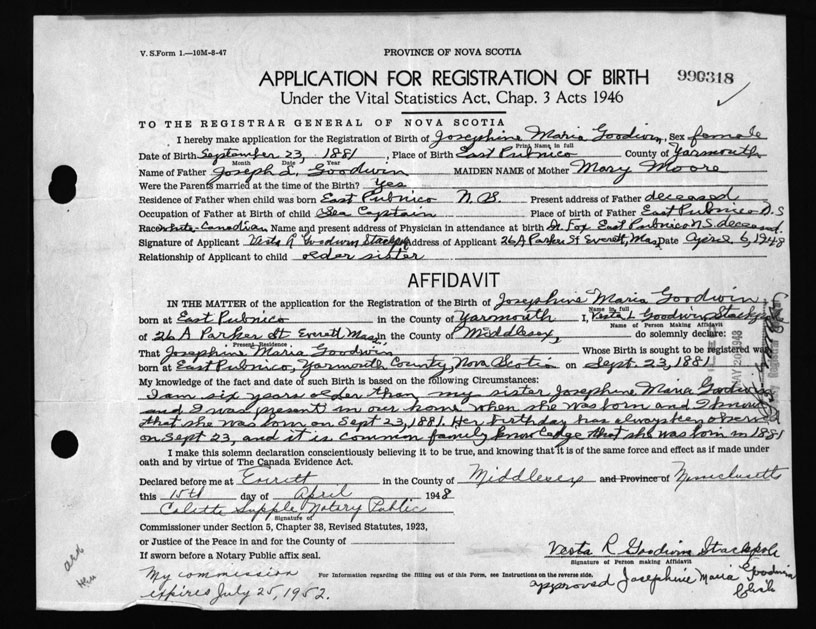 V. S. Form 1.—10M-8-47
PROVINCE OF NOVA SCOTIA
APPLICATION FOR REGISTRATION OF BIRTH
990318
Under the Vital Statistics Act, Chap. 3 Acts 1946
TO THE REGISTRAR GENERAL OF NOVA SCOTIA
I hereby make application for the Registration of Birth of Josephine Maria Goodwin, Sex female
Print Name in full
Date of Birth September 23, 1881, Place of Birth East Pubnico County of Yarmouth
Month Date Year
Name of Father Joseph L. Goodwin MAIDEN NAME of Mother Mary Moore
Were the Parents married at the time of the Birth? Yes
Residence of Father when child was born East Pubnico N.S. Present address of Father deceased
Occupation of Father at Birth of child Sea Captain Place of birth of Father East Pubnico N.S
Race white-Canadian Name and present address of Physician in attendance at birth Dr. Fox East Pubnico N S deceased.
Signature of Applicant Vesta R Goodwin Stackpole Address of Applicant 26 A Parker St Everett, Mass Date April 6, 1948
Relationship of Applicant to child older sister
AFFIDAVIT
IN THE MATTER of the application for the Registration of the Birth of Josephine Maria Goodwin
born at East Pubnico in the County of Yarmouth I, Vesta Goodwin Stackpole
Name in full
Name of Person Making Affidavit
of 26 A Parker St. Everett Mass in the County of Middlesex, do solemnly declare:
Present Residence
That Josephine Maria Goodwin Whose Birth is sought to be registered was
born at East Pubnico, Yarmouth County, Nova Scotia on Sept. 23, 1881
My knowledge of the fact and date of such Birth is based on the following Circumstances:
I am six years older than my sister Josephine Maria Goodwin
and I was present in our home when she was born and I know
that she was born on Sept 23, 1881. Her birthday has always been observed
on Sept 23, and it is common family knowledge that she was born in 1881
I make this solemn declaration conscientiously believing it to be true, and knowing that it is of the same force and effect as if made under
oath and by virtue of The Canada Evidence Act.
Declared before me at Everett in the County of Middlesex and Province of Massachusetts
this 15th day of April 1948
Colette Supple Notary Public
Signature of
Commissioner under Section 5, Chapter 38, Revised Statutes, 1923,
or Justice of the Peace in and for the County of
If sworn before a Notary Public affix seal.
Vesta R Goodwin Stackpole
Signature of Person making Affidavit
My commission
expires July 25, 1952.
For Information regarding the filling out of this Form, see Instructions on the reverse side.
approved Josephine Maria Goodwin